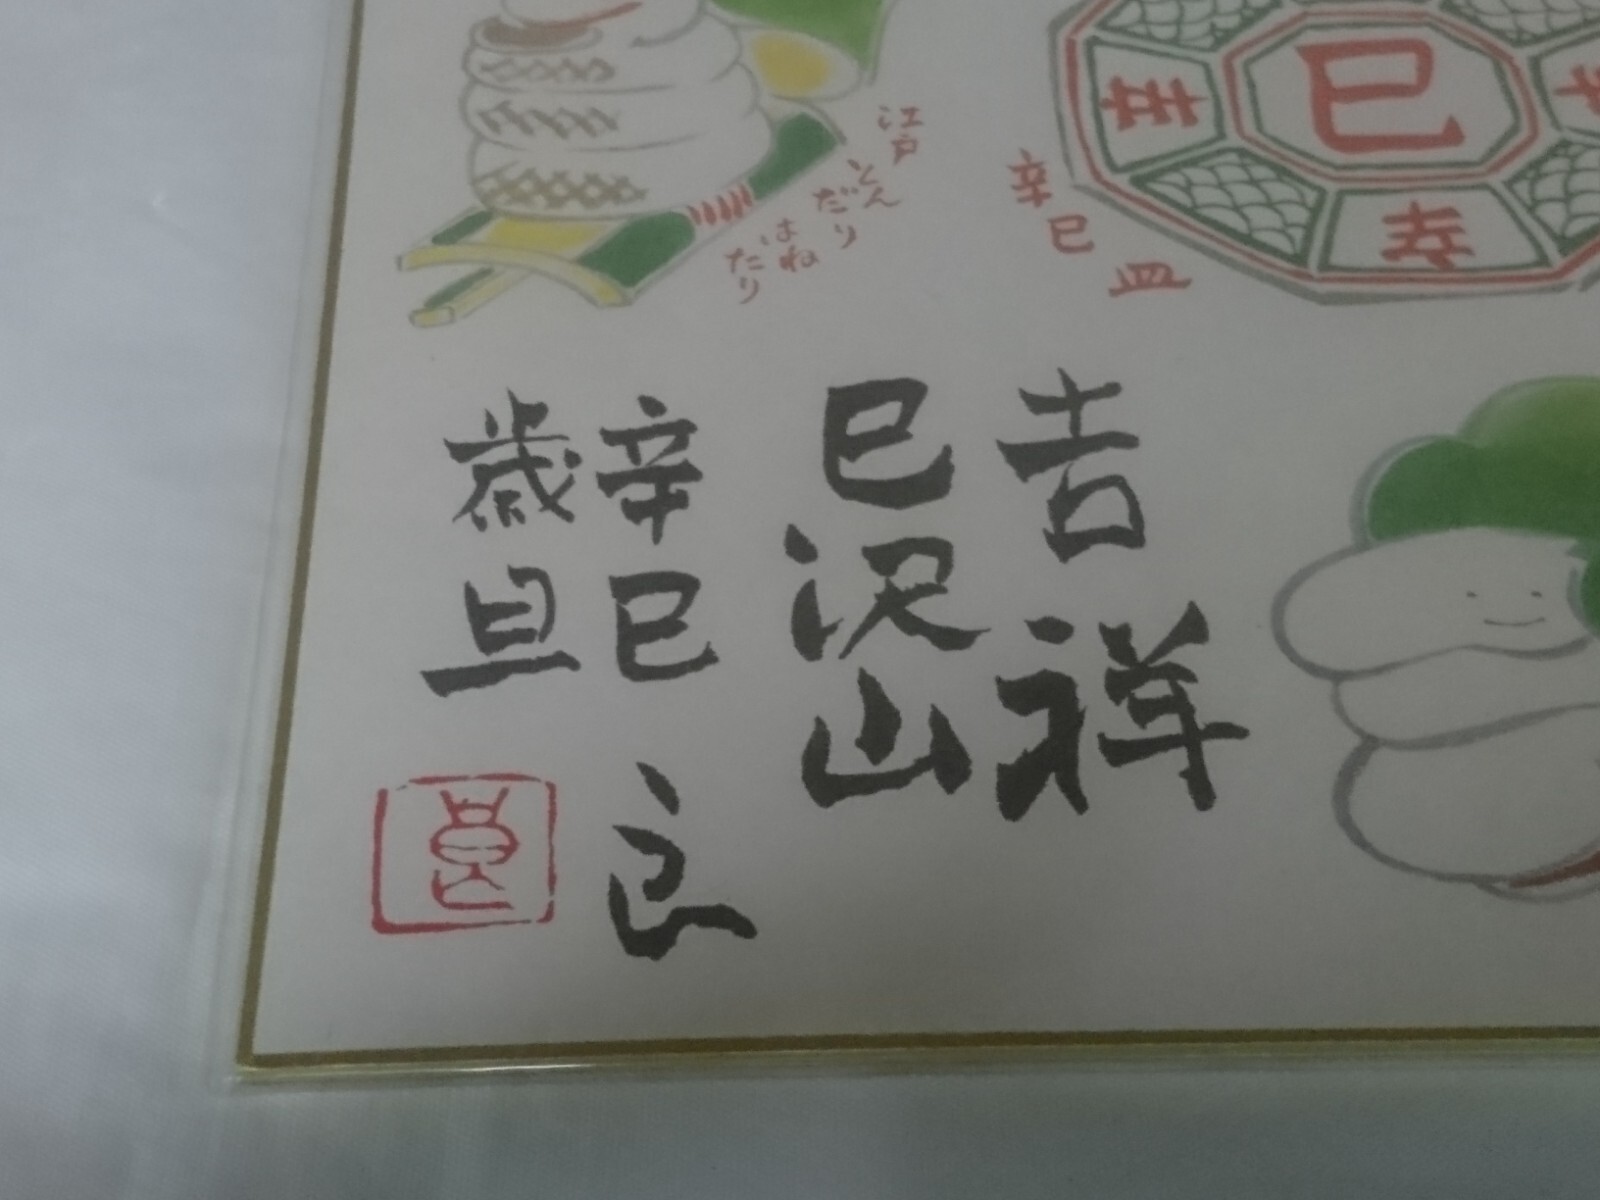 巳
寿
辛
巳
皿
江戸
とんだり
はね
だり
吉祥
巳沢山
辛巳 良
歳旦